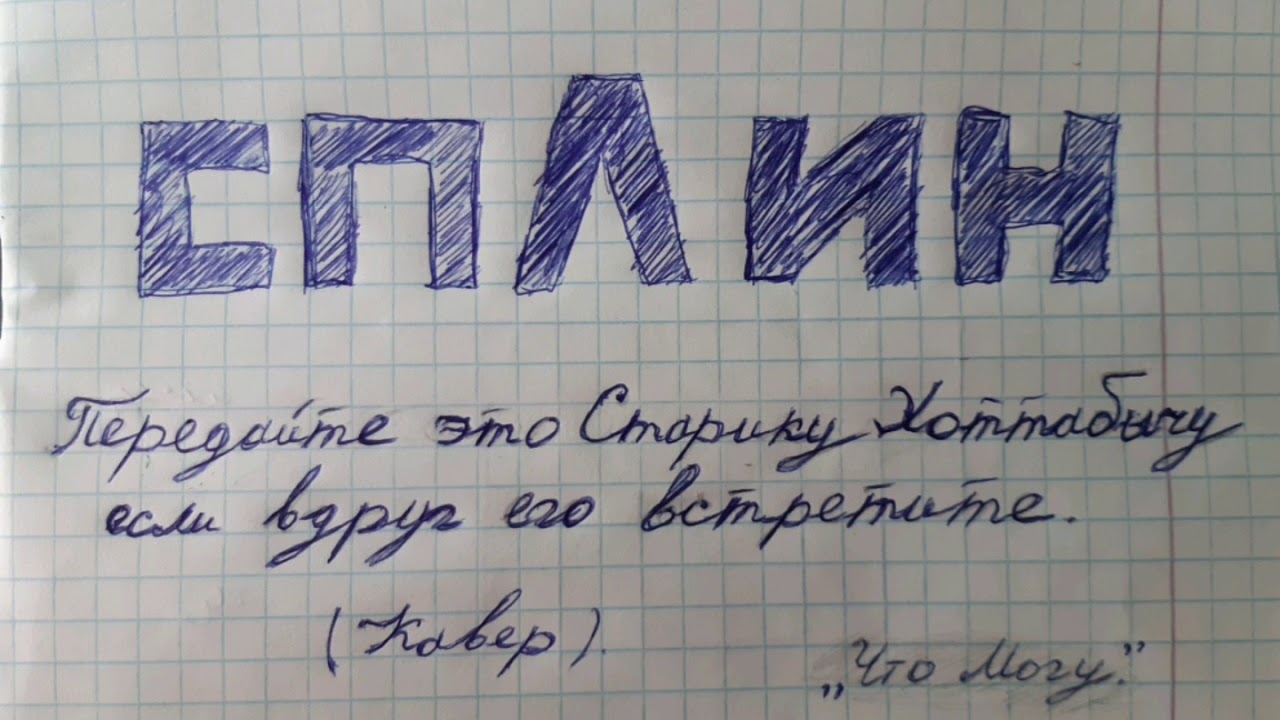 СПЛИН
Передайте это Старику Хоттабычу
если вдруг его встретите.
(Кавер).
„Что Могу.”